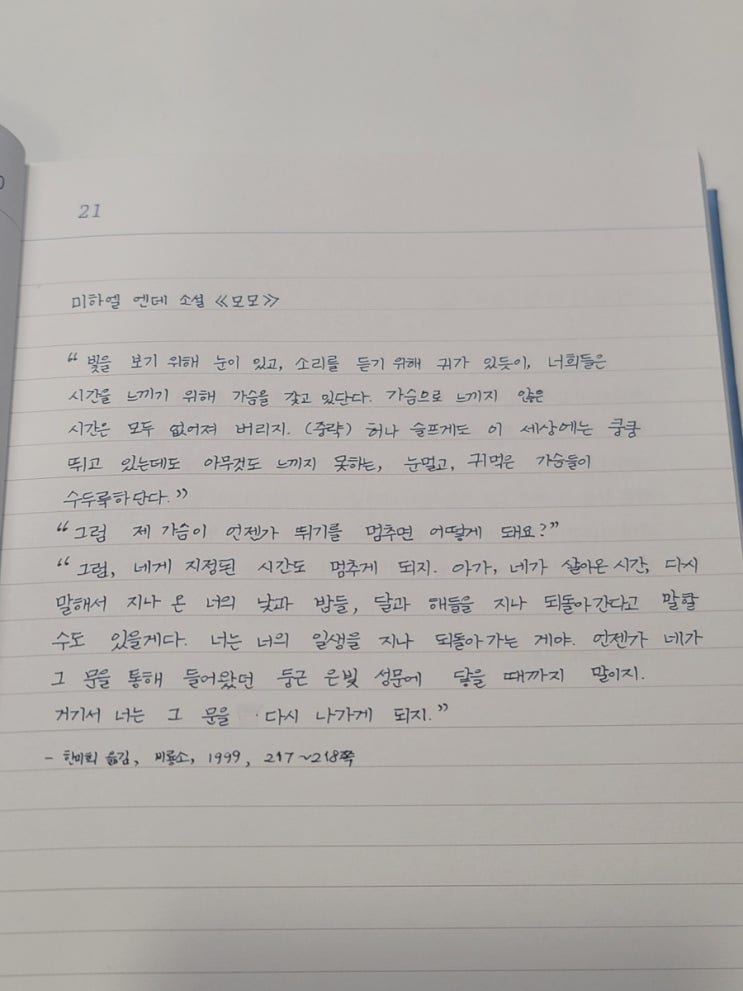 21
미하엘 엔데 소설 《모모》
“빛을 보기 위해 눈이 있고, 소리를 듣기 위해 귀가 있듯이, 너희들은
시간을 느끼기 위해 가슴을 갖고 있단다. 가슴으로 느끼지 않은
시간은 모두 없어져 버리지. (중략) 허나 슬프게도 이 세상에는 쿵쿵
뛰고 있는데도 아무것도 느끼지 못하는, 눈멀고, 귀먹은 가슴들이
수두룩하단다.”
“그럼 제 가슴이 언젠가 뛰기를 멈추면 어떻게 돼요?”
“그럼, 네게 지정된 시간도 멈추게 되지. 아가, 네가 살아온 시간, 다시
말해서 지나 온 너의 낮과 밤들, 달과 해들을 지나 되돌아간다고 말할
수도 있을게다. 너는 너의 일생을 지나 되돌아가는 게야. 언젠가 네가
그 문을 통해 들어왔던 둥근 은빛 성문에 닿을 때까지 말이지.
거기서 너는 그 문을 다시 나가게 되지.”
- 한미희 옮김, 비룡소, 1999, 217~218쪽